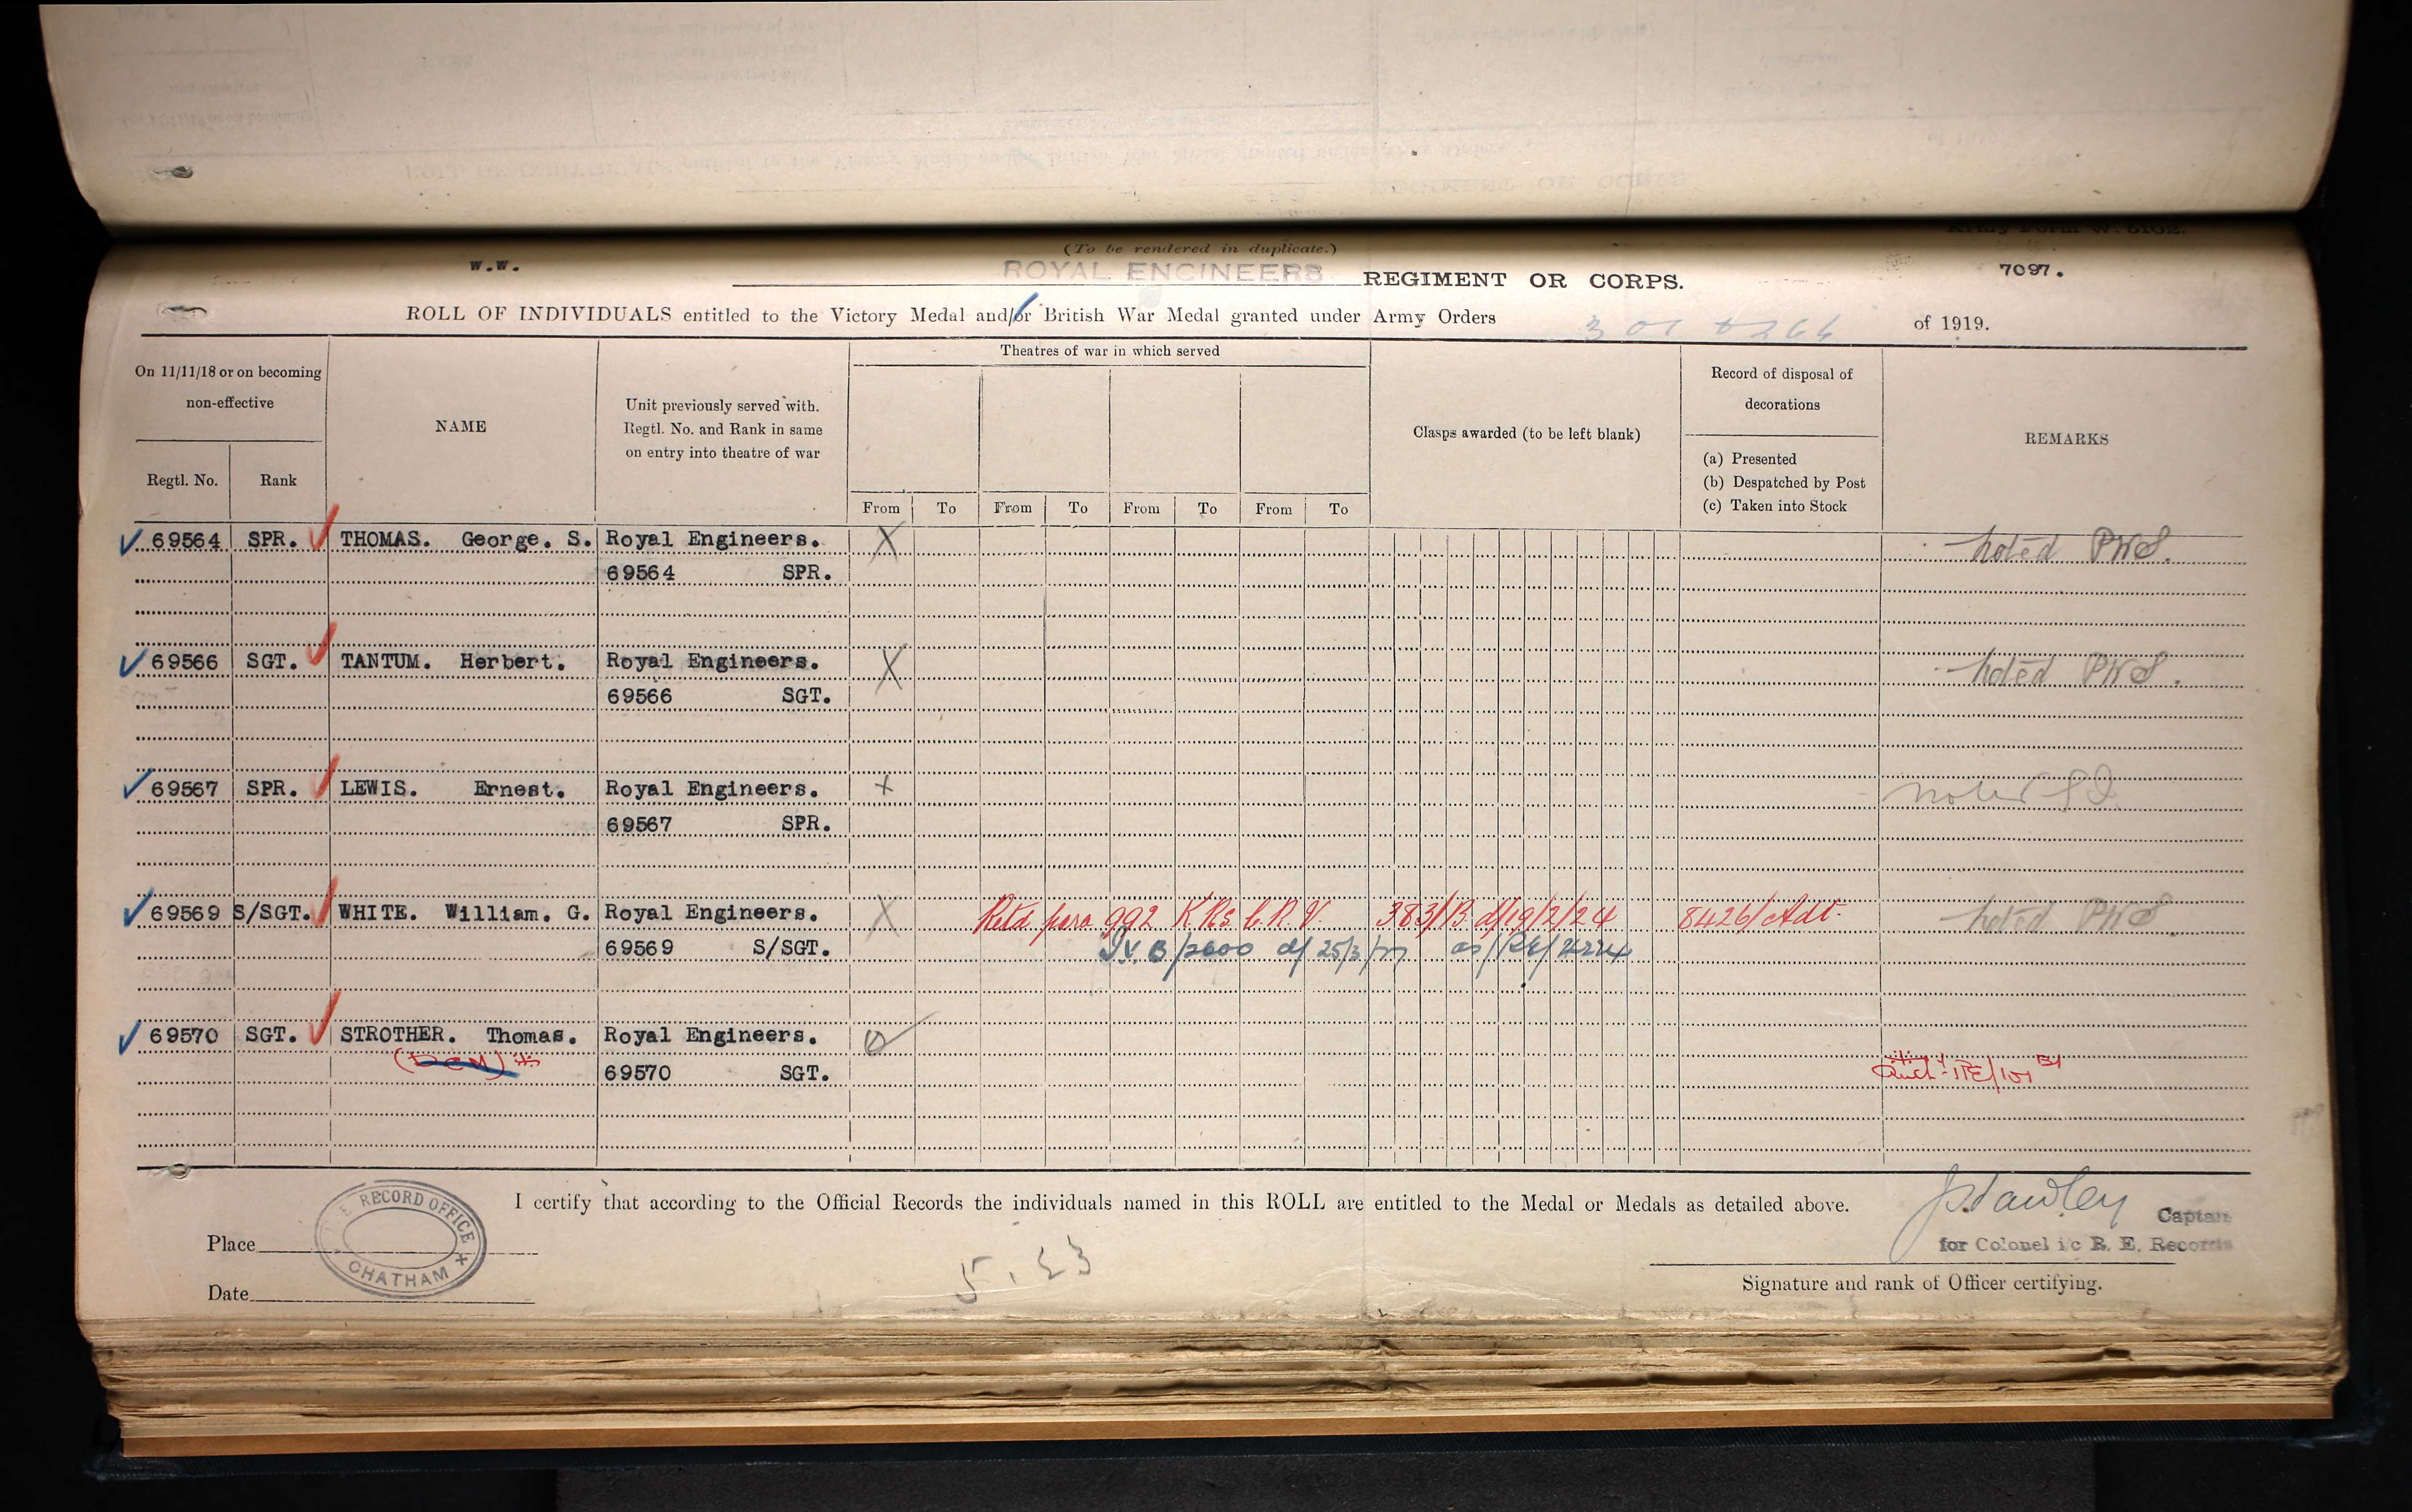 (To be rendered in duplicate.)
Army Form W. 5162.
W.W.
ROYAL ENGINEERS REGIMENT OR CORPS.
7097.
ROLL OF INDIVIDUALS entitled to the Victory Medal and/or British War Medal granted under Army Orders 301 & 266 of 1919.
On 11/11/18 or on becoming non-effective
Regtl. No.
Rank
NAME
Unit previously served with.
Regtl. No. and Rank in same
on entry into theatre of war
Theatres of war in which served
From To From To From To From To
Clasps awarded (to be left blank)
Record of disposal of
decorations
(a) Presented
(b) Despatched by Post
(c) Taken into Stock
REMARKS
69564 SPR. THOMAS. George. S. Royal Engineers. X noted PWS.
69564 SPR.
69566 SGT. TANTUM. Herbert. Royal Engineers. X noted PWS.
69566 SGT.
69567 SPR. LEWIS. Ernest. Royal Engineers. X noted
69567 SPR.
69569 S/SGT. WHITE. William. G. Royal Engineers. X Retd para 992 KRs 383/B d/19/2/24 8426/Adt. noted PWS
69569 S/SGT. I.V. B/2600 d/ 25/3/
69570 SGT. STROTHER. Thomas. Royal Engineers.
(DCM)
69570 SGT. Auth: RE/101
I certify that according to the Official Records the individuals named in this ROLL are entitled to the Medal or Medals as detailed above.
Captain
for Colonel i/c R. E. Records
Place
R.E. RECORD OFFICE
CHATHAM
Date
Signature and rank of Officer certifying.